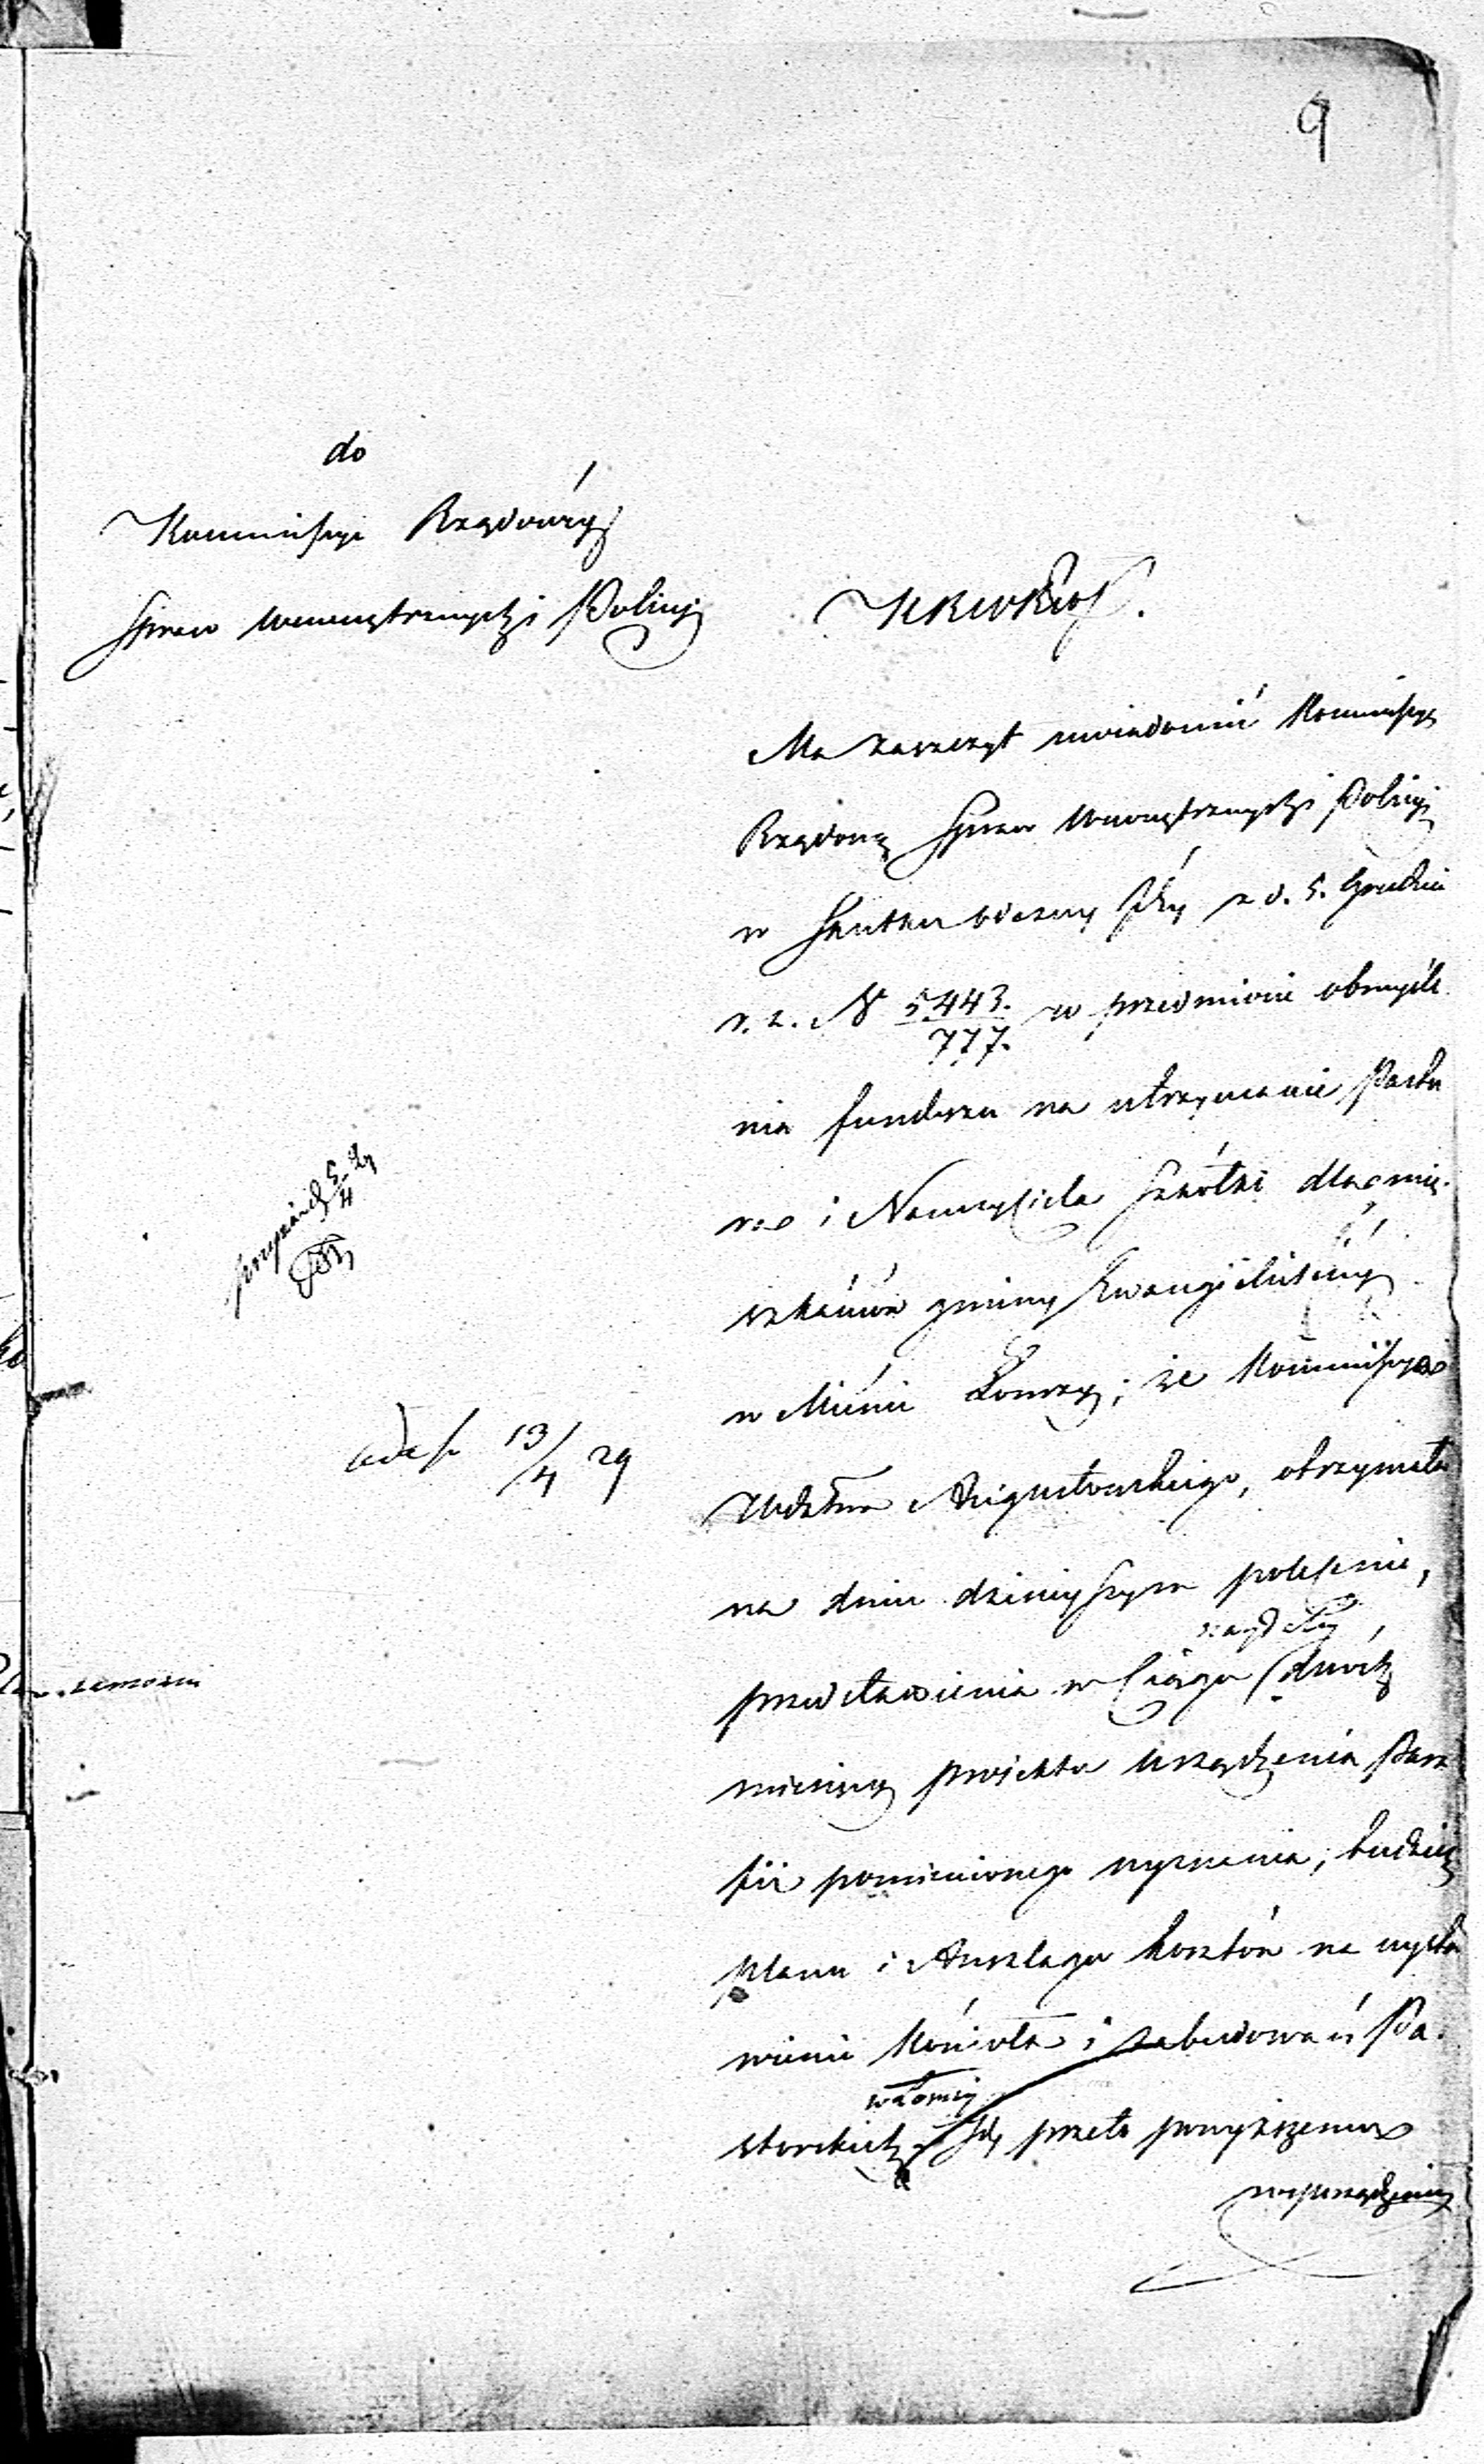 9
do
Kommissyi Rządowéy
Spraw Wewnętrznych i Policyi
KRWROP.
Ma zaszczyt uwiadomić Kommissyę
Rządową Spraw Wewnętrznych i Policyi
w skutku odezwy z d. 5. Grudnia
r. z. N 5443.
777. w przedmiocie obmyśle
nia funduszu na utrzymanie Pasto
ra i Nauczyciela szkółki dla mie-
szkańców gminy Ewangielickiéy
w Mieście Łomży; że Kommissya
Wdztwa Augustowskiego, otrzymała
na dniu dzisieyszym polecenie,
przedstawienia w ciągu dwóch
miesięcy projektu urządzenia Para
fii pomienionego wyznania, tudzież
planu i Anszlagu kosztów na wysta
wienie Kościoła i zabudowań Pa-
w Łomży
storskich. przeto powyższemu
rozporządzeniu
przepisał 5/4 29
13/4 29